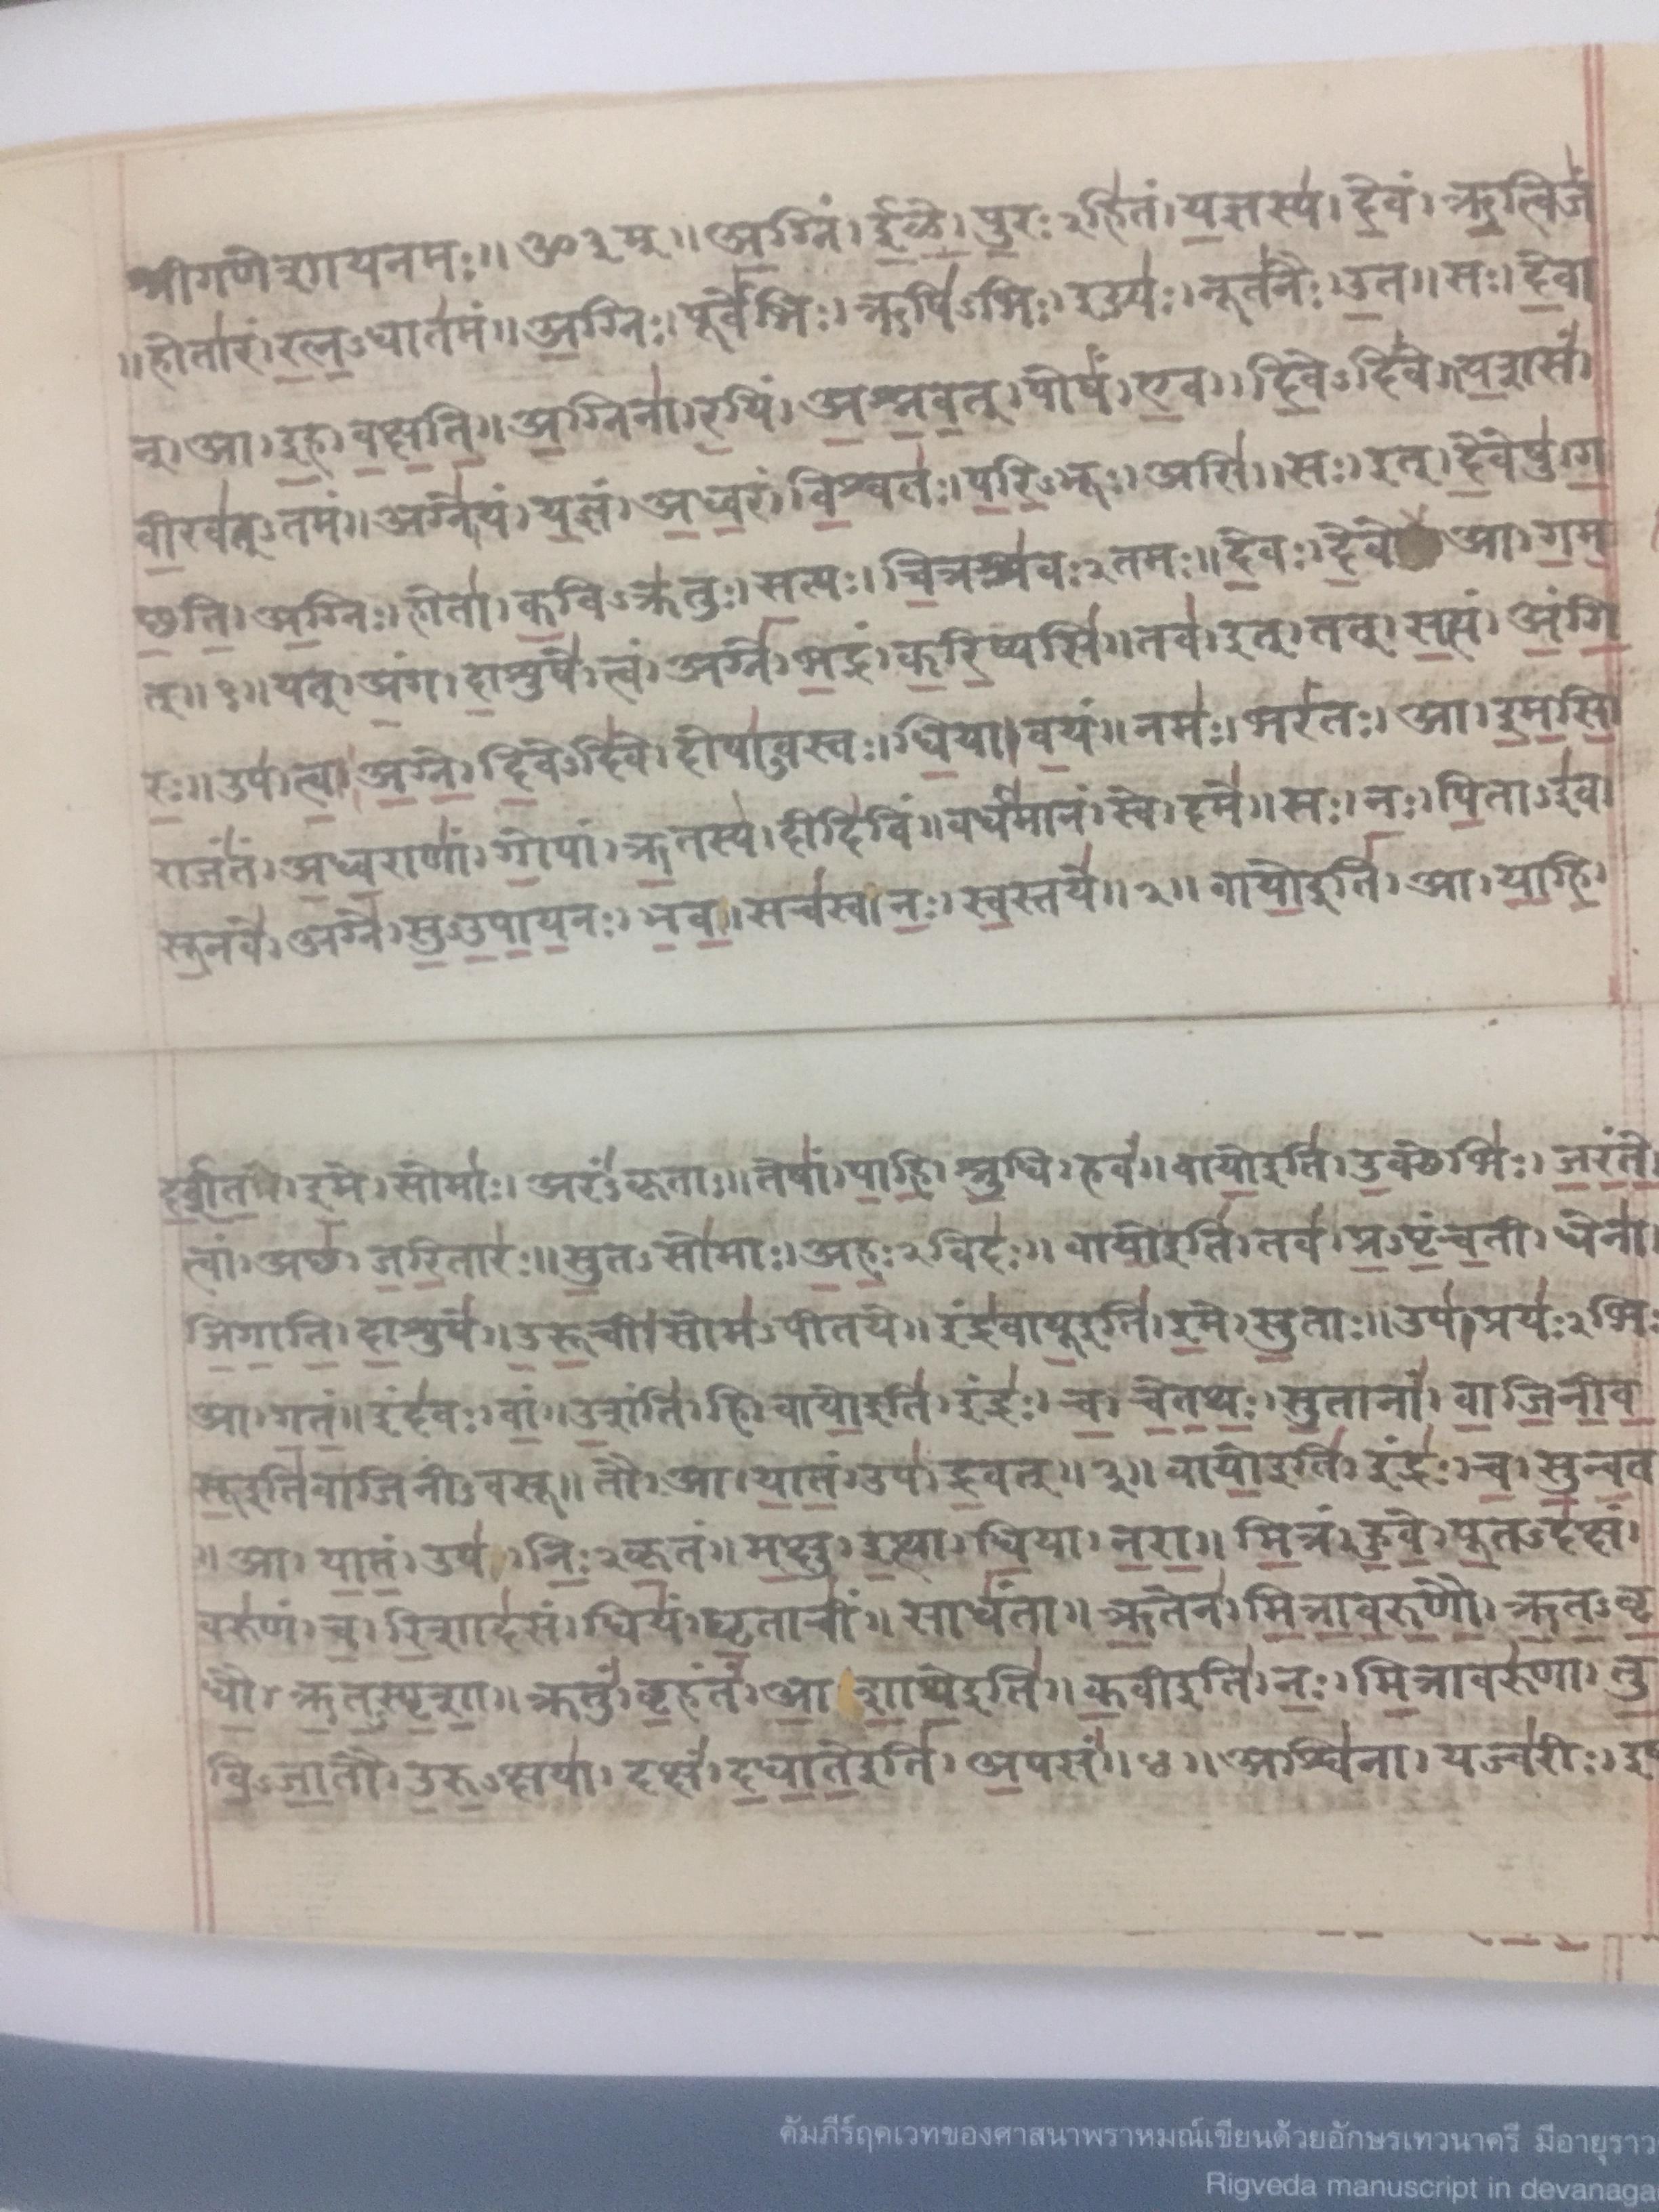 श्रीगणेशायनमः॥ॐ३म्॥अ॒ग्निं। ई॒ळे॒। पु॒रः२हि॑तं। य॒ज्ञस्य॑। दे॒वं। ऋ॒त्विजं॑
॥होता॑रं। र॒त्न॒ऽधात॑मं॥ अ॒ग्निः। पूर्वे॑भिः। ऋषि॑ऽभिः। इड्यः॑। नूत॑नैः। उ॒त॥ सः। दे॒वा
न्। आ। इ॒ह। व॒क्ष॒ति॒॥ अ॒ग्निना॑। र॒यिं। अ॒श्न॒व॒त्। पोषं॑। ए॒व। दि॒वेऽदि॑वे॥ य॒शसं॑।
वी॒रव॑त्ऽतमं॥ अग्ने॒यं। य॒ज्ञं। अ॒ध्व॒रं। वि॒श्वतः॑। प॒रि॒ऽभूः। असि॑॥ सः। इत्। दे॒वेषु॑। ग॒
छ॒ति॒। अ॒ग्निः। होता॑। क॒विऽक्र॑तुः। सत्यः। चि॒त्रश्र॑वः२तमः॥ दे॒वः। दे॒वे आ। ग॒म॒
त्॥१॥ यत्। अं॒ग। दा॒शुषे॑। त्वं। अग्ने॑। भ॒द्रं। क॒रि॒ष्यसि॑॥ तव॑। इत्। तत्। स॒त्यं। अं॒गि॒
रः॒॥ उप॑। त्वा॒। अ॒ग्ने॒। दि॒वेऽदि॑वे। दोषा॑ऽवस्तः। धि॒या। व॒यं॥ नमः॑। भरं॑तः। आ। इ॒म॒सि॒।
राजं॑तं। अ॒ध्व॒राणां॑। गो॒पां। ऋ॒तस्य॑। दीदि॑विं॥ वर्ध॑मानं। स्वे। दमे॑॥ सः। नः॒। पि॒ताऽइ॑व।
सू॒नवे॑। अग्ने॑। सु॒ऽउ॒पा॒य॒नः। भ॒व॒॥ सच॑स्व। नः॒। स्व॒स्तये॑॥२॥ वायो॒इति॑। आ। या॒हि॒।
द॒र्श॒त॒। इ॒मे। सोमाः॑। अरं॑ऽकृताः॥ तेषां॑। पा॒हि॒। श्रु॒धि। हवं॑॥ वायो॒इति॑। उ॒क्थेभिः॑। ज॒रं॒ते॒।
त्वां। अछ॑। ज॒रि॒तारः॑॥ सु॒तऽसो॑माः। अ॒हः॒२विदः॑॥ वायो॒इति॑। तव॑। प्र॒ऽपृं॒च॒ती। धेना॑।
जि॒गा॒ति॒। दा॒शुषे॑॥ उ॒रू॒ची। सोम॑ऽपीतये॥ इंद्र॑वायू॒इति॑। इ॒मे। सु॒ताः॥ उप॑। प्रयः॑२भिः
आ। ग॒तं॒॥ इंद॑वः। वां॒॥ उ॒शंति॑। हि। वायो॒इति॑। इंद्रः॑। च॒। चे॒त॒थः॒। सु॒तानां॑। वा॒जि॒नी॒व॒
सू॒इति॑वाजिनीऽवसू॥ तौ। आ। या॒तं॒। उप॑। द्र॒वत्॥३॥ वायो॒इति॑। इंद्रः॑। च॒। सु॒न्व॒त
॥ आ। या॒तं॒। उप॑। निः॒२कृ॒तं॥ म॒क्षु। इ॒त्था। धि॒या। न॒रा॒॥ मि॒त्रं। हु॒वे॒। पू॒तऽद॑क्षं।
वरु॑णं। च॒। रि॒शाद॑सं। धियं॑। घृ॒ताचीं॑॥ साधं॑ता॥ ऋ॒तेन॑। मि॒त्रा॒व॒रु॒णौ॒। ऋ॒त॒ऽवृ॒
धौ॒। ऋ॒त॒स्पृ॒शा॒॥ क्रतुं॑। बृ॒हंतं॑। आ॒ शा॒थे॒इति॑॥ क॒वीइति॑। नः॒। मि॒त्रावरु॑णा। तु॒
वि॒ऽजा॒तौ। उ॒रु॒ऽक्षया॑। दक्षं॑। द॒धा॒ते॒इति॑। अ॒पसं॑॥४॥ अश्वि॑ना। यज्व॑रीः। इष
คัมภีร์ฤคเวทของศาสนาพราหมณ์เขียนด้วยอักษรเทวนาครี มีอายุราว
Rigveda manuscript in devanaga